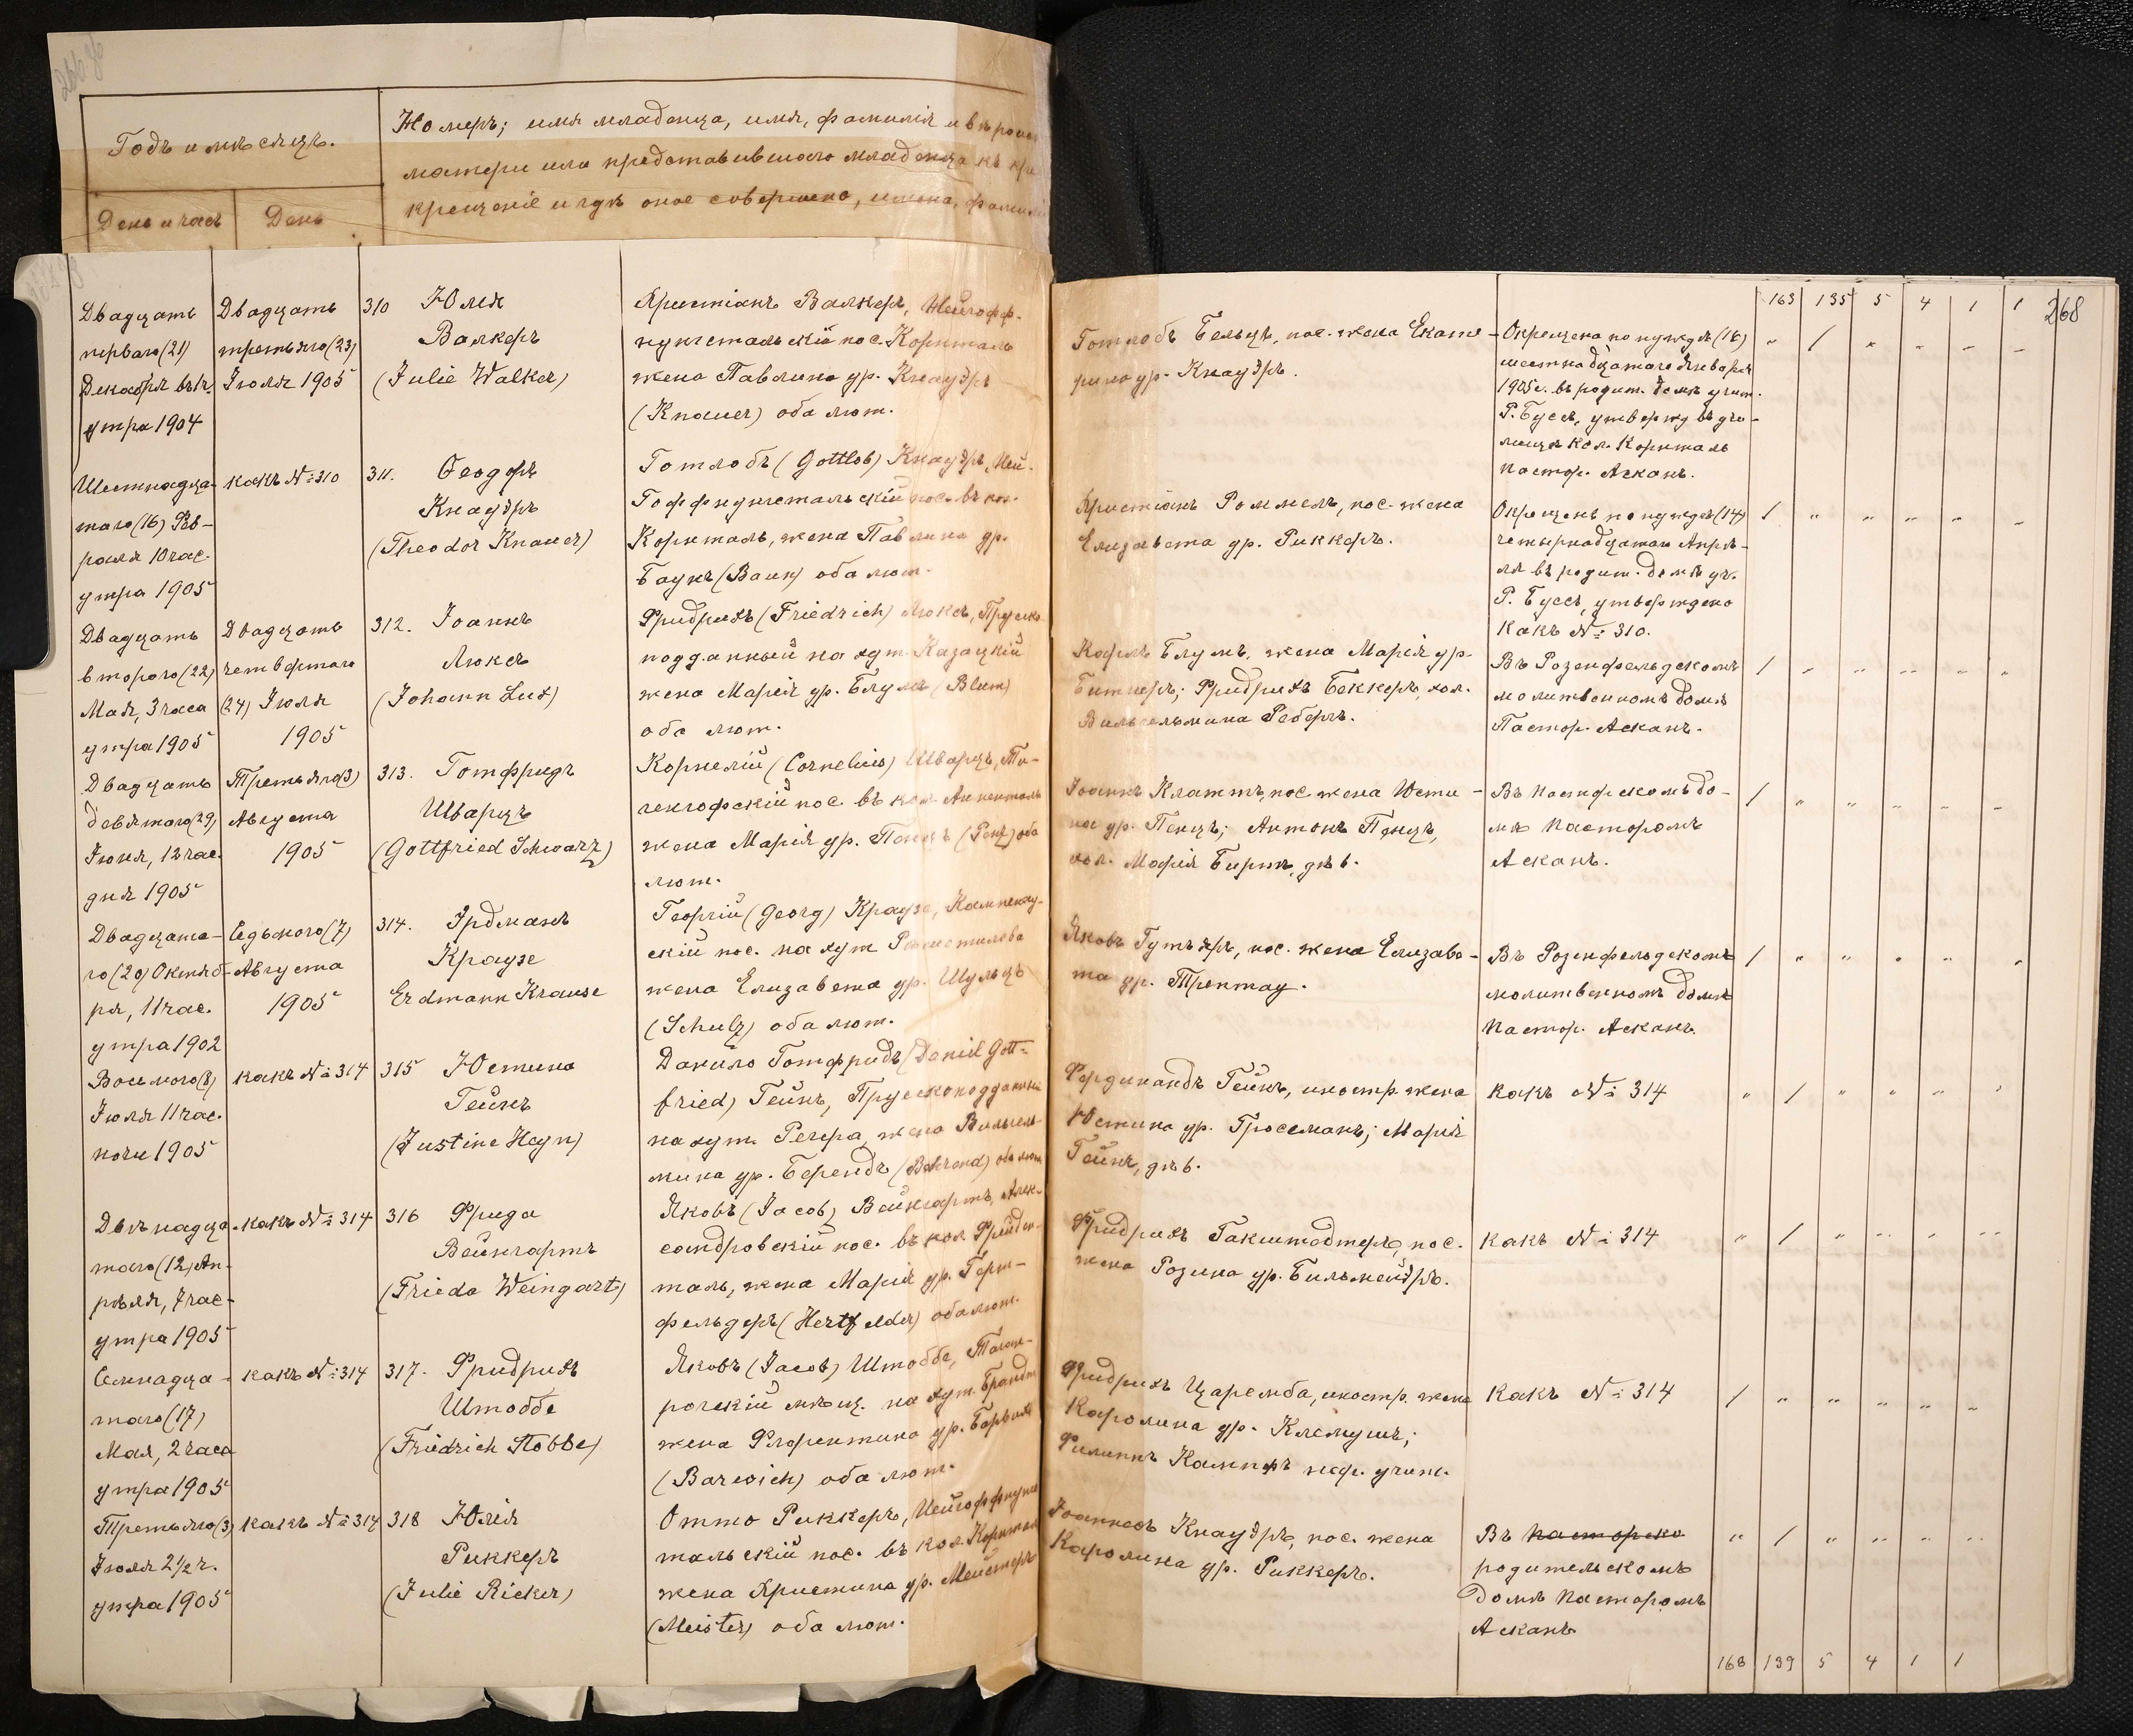 Годъ и мѣсяцъ.
День и часъ
День
Номеръ; имя младенца, имя, фамилія и вѣроис
матери или представившаго младенца къ кре
крещеніе и гдѣ оное совершено, имена, фамилі
268
163 135 5 4 1 1
Двадцать
перваго (21)
Декабря
утра 1904
Двадцать
третьяго (23)
Іюля 1905
310 Юлія
Валкеръ
(Julie Walker)
Христіанъ Валкеръ, Нейгофф-
нунгстальскій пос. Корнталь
жена Павлина ур. Кнауэръ
(Knauer) оба лют.
Готлобъ Бельцъ, пос. жена Екате-
рина ур. Кнауэръ.
Окрещена по нуждѣ (16)
шестнадцатаго Января
1905 г. въ родит. домѣ учит.
Р. Буссъ, утвержд въ учи-
лищѣ кол. Корнталь
пастор. Асканъ.
" 1 " " " "
Шестнадца-
таго (16) Фев-
раля 10 час.
утра 1905
какъ № 310
311. Ѳеодоръ
Кнауэръ
(Theodor Knauer)
Готлобъ (Gottlob) Кнауэръ, Ней-
гоффнунгстальскій пос. въ кол.
Корнталь, жена Павлина ур.
Баукъ (Bauk) оба лют.
Христіанъ Роммель, пос. жена
Елизавета ур. Риккеръ.
Окрещенъ по нуждѣ (14)
четырнадцатаго Апрѣ-
ля въ родит. домѣ уч.
Р. Буссъ, утверждено
какъ № 310.
1 " " " " "
Двадцать
второго (22)
Мая, 3 часа
утра 1905
Двадцать
четвертаго
(24) Іюля
1905
312. Іоаннъ
Люксъ
(Johann Lux)
Фридрихъ (Friedrich) Люксъ, Прусско-
подданный на хут. Казацкій
жена Марія ур. Блумъ (Blum)
оба лют.
Карлъ Блумъ, жена Марія ур.
Битнеръ; Фридрихъ Беккеръ, хол.
Вильгельмина Реберъ.
Въ Розенфельдскомъ
молитвенномъ домѣ
Пастор. Асканъ.
1 " " " " "
Двадцать
девятаго (29)
Іюня, 12 час.
дня 1905
Третьяго (3)
Августа
1905
313. Готфридъ
Шварцъ
(Gottfried Schwarz)
Корнелій (Cornelius) Шварцъ,
пос. въ кол. Анненталь
жена Марія ур. Пенцъ (Penz) оба
лют.
Іоаннъ Клаттъ, пос. жена Юсти-
на ур. Пенцъ; Антонъ Пенцъ,
хол. Марія Биртъ, дѣв.
Въ пасторскомъ до-
мѣ Пасторомъ
Асканъ.
1 " " " " "
Двадцата-
го (20) Октяб-
ря, 11 час.
утра 1902
Седьмого (7)
Августа
1905
314. Эрдманъ
Краузе
Erdmann Krause
Георгій (Georg) Краузе,
скій пос. на хут
жена Елизавета ур. Шульцъ
(Schulz) оба лют.
Яковъ Гутъяръ, пос. жена Елизаве-
та ур. Трептау.
Въ Розенфельдскомъ
молитвенномъ домѣ
Пастор. Асканъ.
1 " " " " "
Восьмого (8)
Іюля 11 час.
ночи 1905
какъ № 314
315 Юстина
Гейнъ
(Justine Heyn)
Данило Готфридъ (Daniel Gott-
fried) Гейнъ, Прусскоподданный
на хут. Регера, жена Вильгель-
мина ур. Берендъ (Behrend) оба лют
Фердинандъ Гейнъ, иностр. жена
Юстина ур. Гроссманъ; Марія
Гейнъ, дѣв.
какъ № 314
" 1 " " " "
Двѣнадца-
таго (12) Ап-
рѣля, 7 час.
утра 1905
какъ № 314
316 Фрида
Вейнгартъ
(Frieda Weingart)
Яковъ (Jacob) Вейнгартъ, Алек-
сандровскій пос. въ кол. Фриден-
таль, жена Марія ур. Герт-
фельдеръ (Hertfelder) оба лют.
Фридрихъ Гакштедтеръ, пос.
жена Розина ур. Бильмейеръ.
какъ № 314
" 1 " " " "
Семнадца-
таго (17)
Мая, 2 часа
утра 1905
какъ № 314
317. Фридрихъ
Штоббе
(Friedrich Stobbe)
Яковъ (Jacob) Штоббе, Таган-
рогскій мѣщ. на хут. Брандтъ
жена Флорентина ур. Барвихъ
(Barwich) оба лют.
Фридрихъ Царемба, иностр. жена
Каролина ур. Клемушъ;
Филиппъ Кампфъ неф. учит.
какъ № 314
1 " " " " "
Третьяго (3)
Іюля 2½ ч.
утра 1905
какъ № 314
318 Юлія
Риккеръ
(Julie Ricker)
Отто Риккеръ, Нейгоффнунгс
тальскій пос. въ кол. Корнталь
жена Христина ур. Мейстеръ
(Meister) оба лют.
Іоаннесъ Кнауэръ, пос. жена
Каролина ур. Риккеръ.
Въ пасторско
родительскомъ
домѣ Пасторомъ
Асканъ
" 1 " " " "
168 139 5 4 1 1